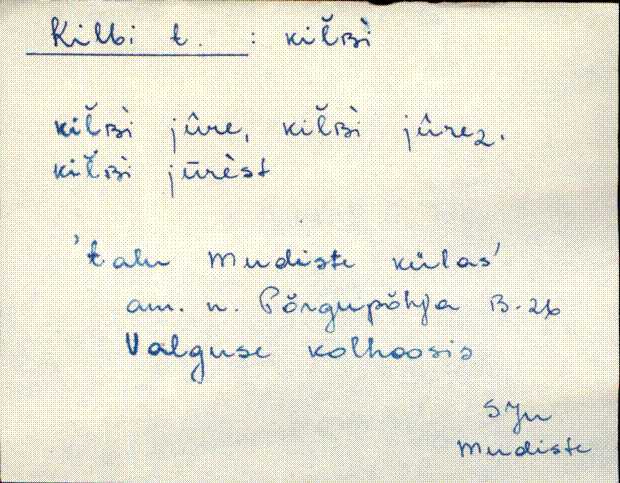 Kilbi t. : kil̆ʙì
kil̆ʙì jûre, kil̆ʙì jûrez.
kil̆ʙì jūrèst
'talu Mudiste külas'
am. n. Põrgupõhja B-26
Valguse kolhoosis
SJn
Mudiste